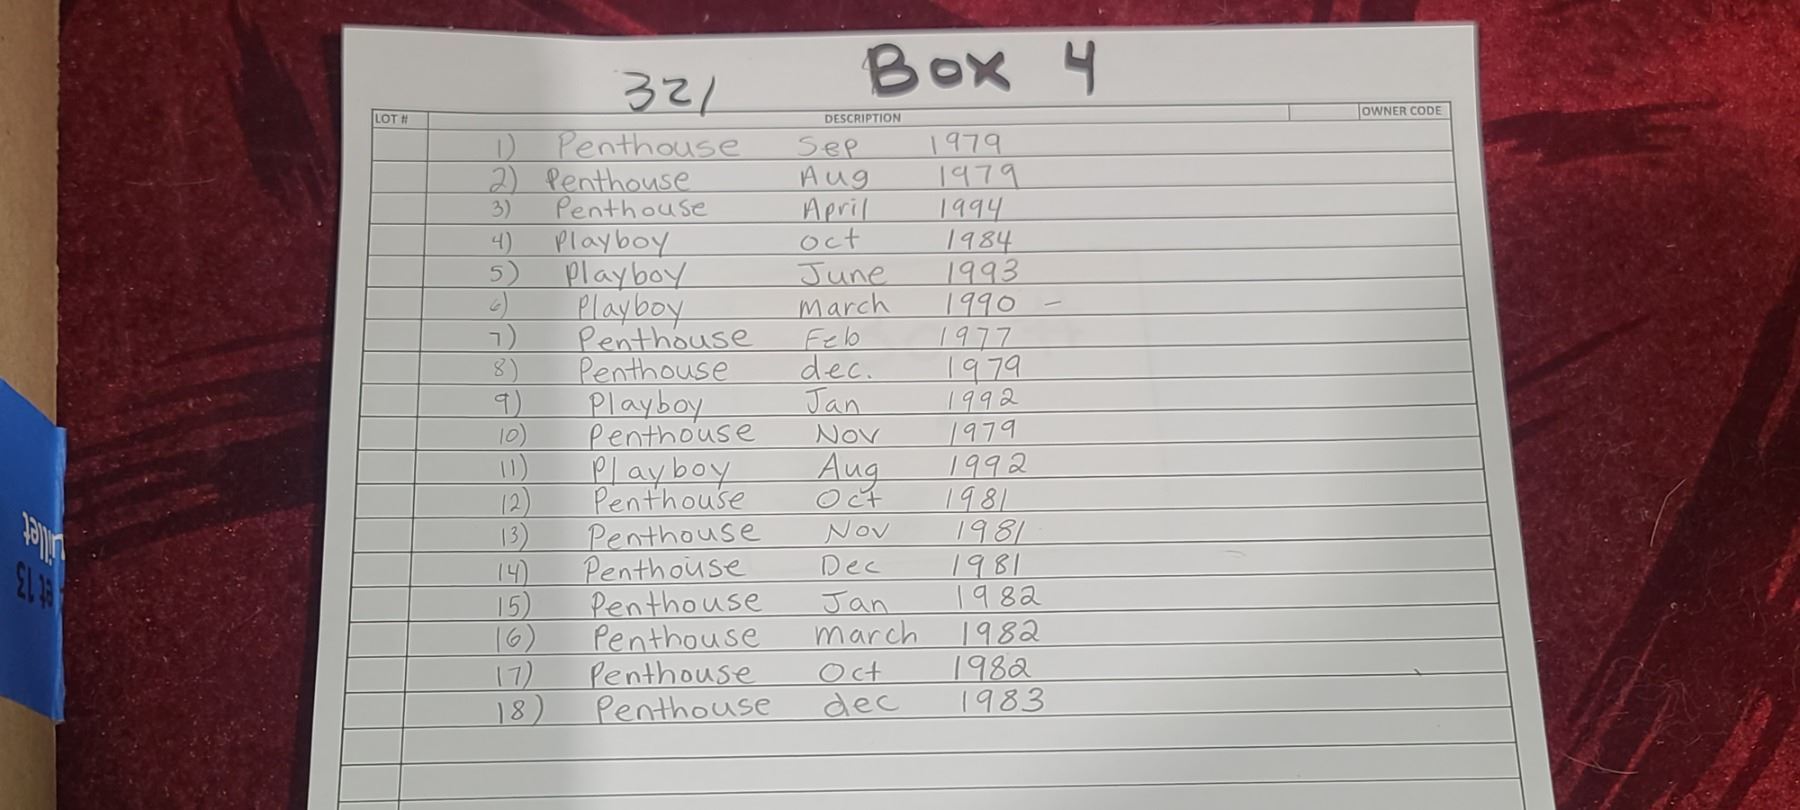 Box 4
321
LOT # DESCRIPTION OWNER CODE
1) Penthouse Sep 1979
2) Penthouse Aug 1979
3) Penthouse April 1994
4) Playboy Oct 1984
5) Playboy June 1993
6) Playboy March 1990 -
7) Penthouse Feb 1977
8) Penthouse dec. 1979
9) Playboy Jan 1992
10) Penthouse Nov 1979
11) Playboy Aug 1992
12) Penthouse Oct 1981
13) Penthouse Nov 1981
14) Penthouse Dec 1981
15) Penthouse Jan 1982
16) Penthouse march 1982
17) Penthouse Oct 1982
18) Penthouse dec 1983